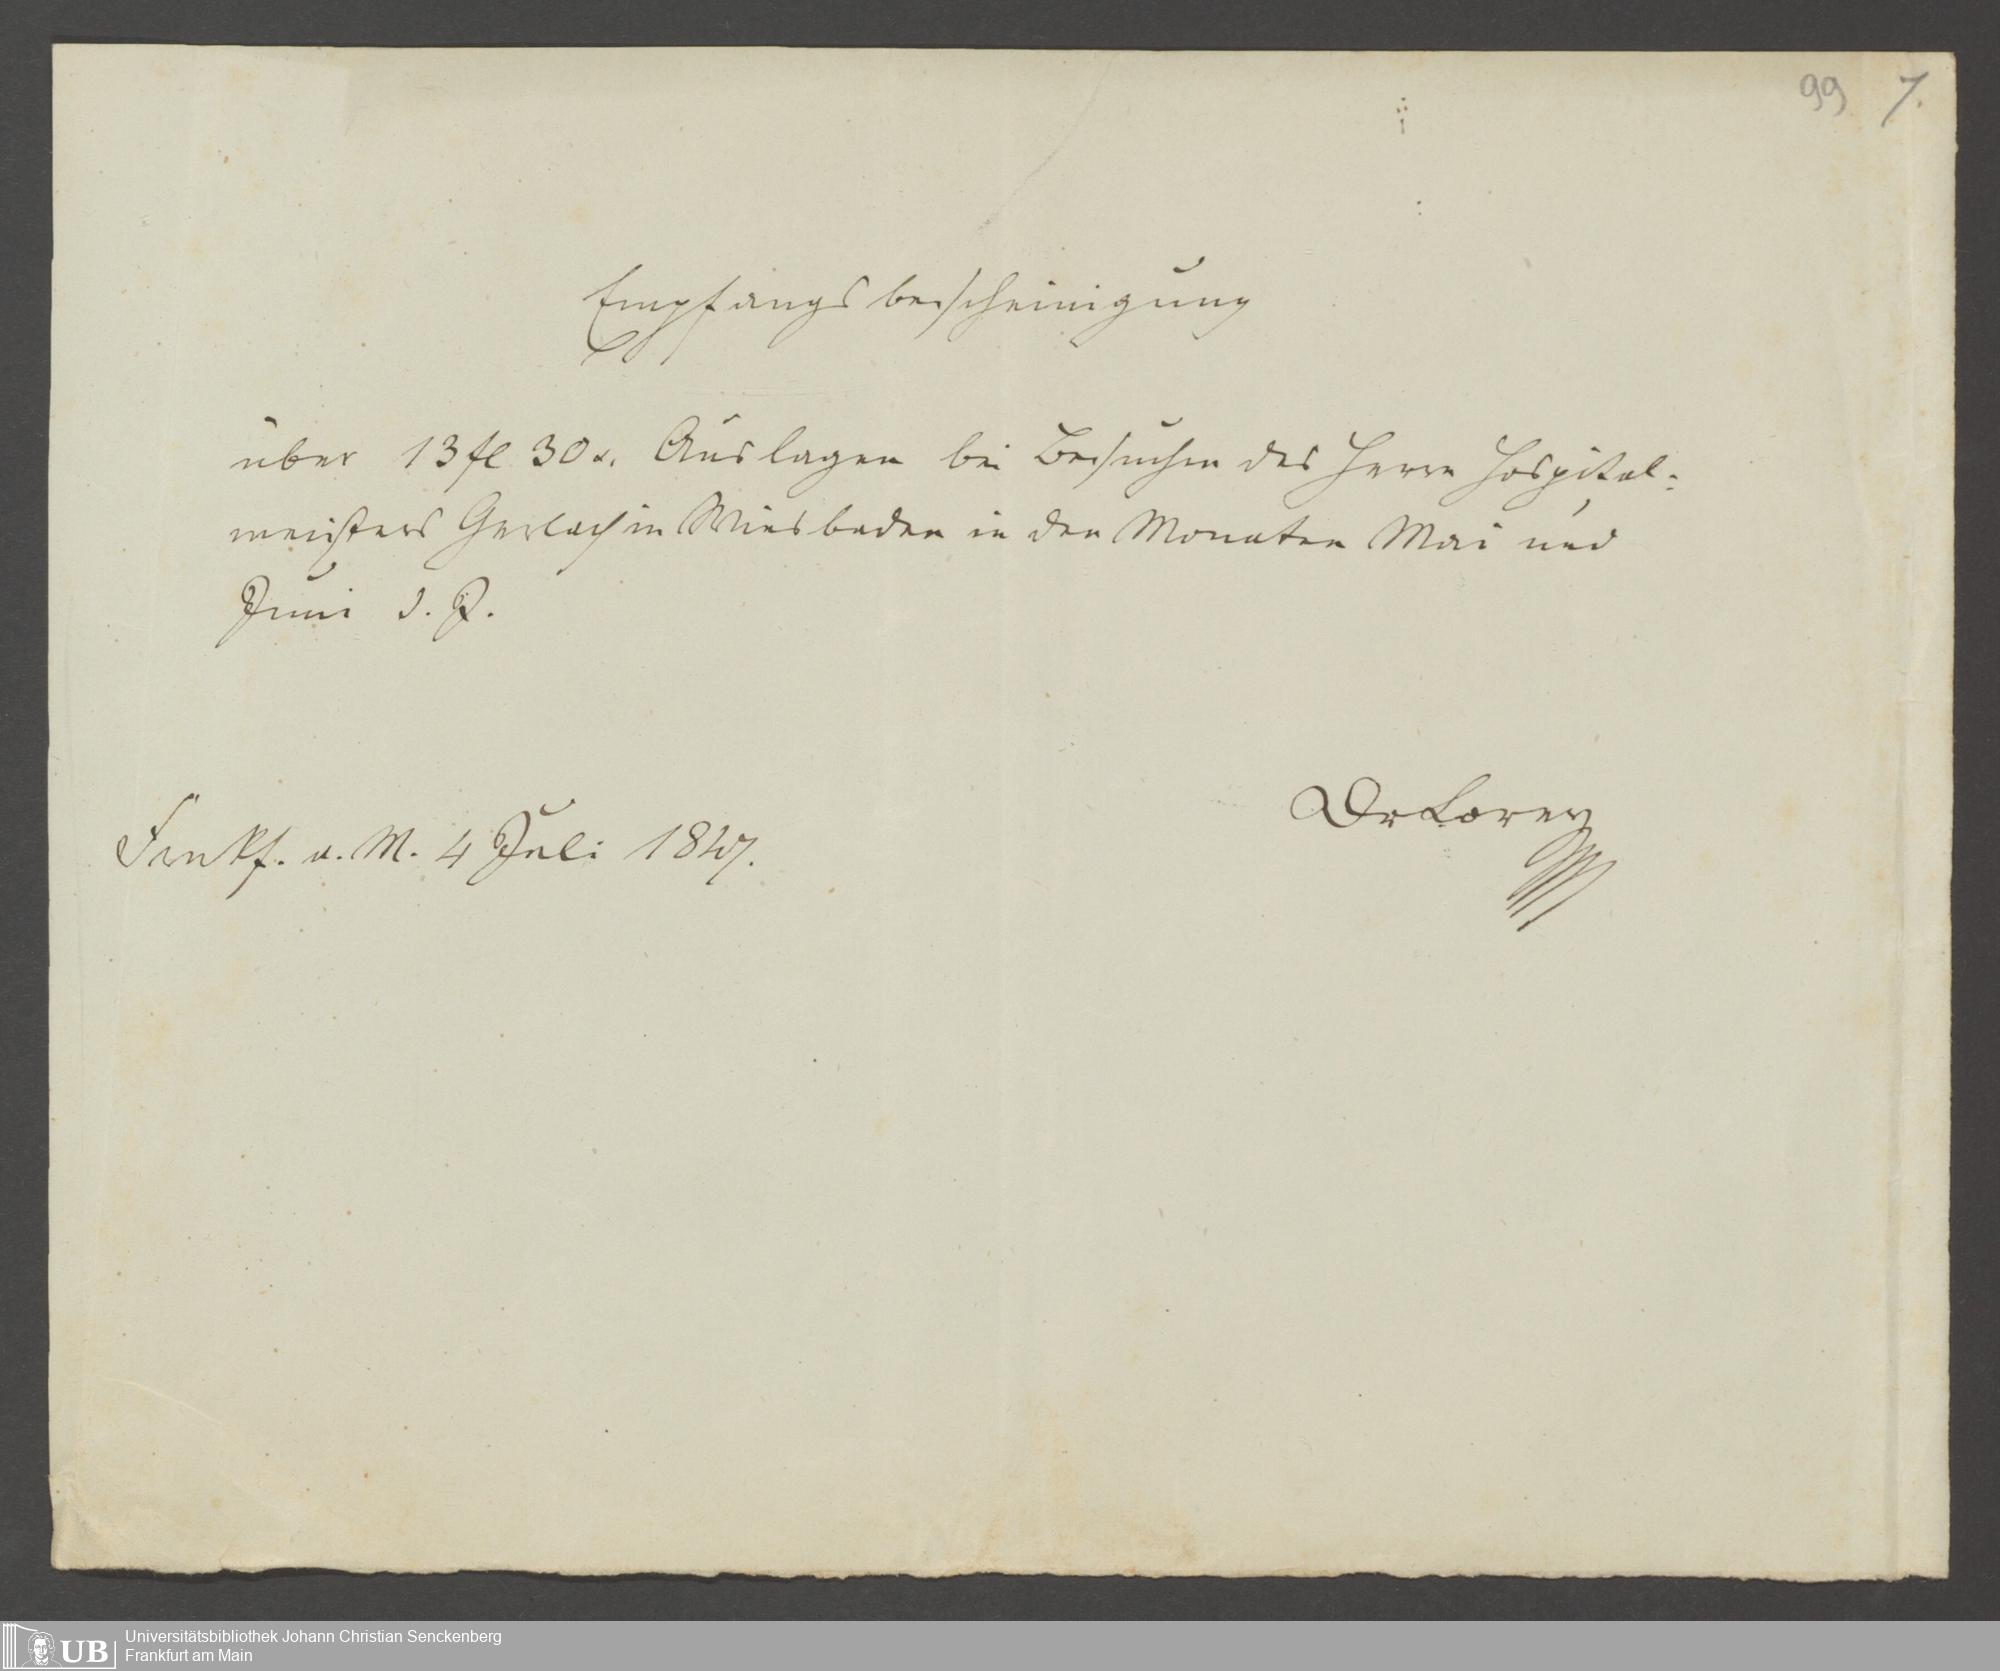 99 7.
Empfangsbescheinigung
über 13 fl 30 x. Auslagen bei Besuchen des Herrn Hospital-
meisters Gerlach in Wiesbaden in den Monaten Mai und
Juni d. J.
Dr Lorey
Frnkf. a. M. 4 Juli 1847.
UB
Universitätsbibliothek Johann Christian Senckenberg
Frankfurt am Main